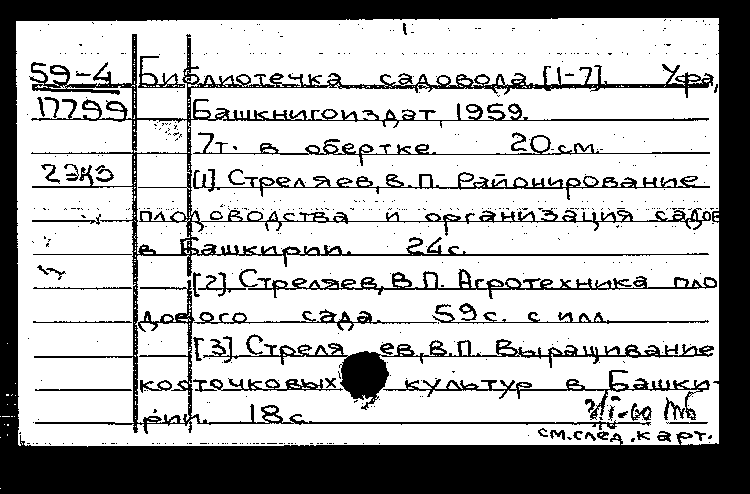 59-4 Библиотечка садовода. [1-7]. Уфа,
17799 Башкнигоиздат, 1959.
7т. в обертке. 20 см.
2 экз [1]. Стреляев, В.П. Районирование
плодоводства и организация садов
в Башкирии. 24 с.
[2]. Стреляев, В.П. Агротехника пло
дового сада. 59 с. с илл.
[3]. Стреляев, В.П. Выращивание
косточковых культур в Башки-
рии. 18 с.
см. след. карт.